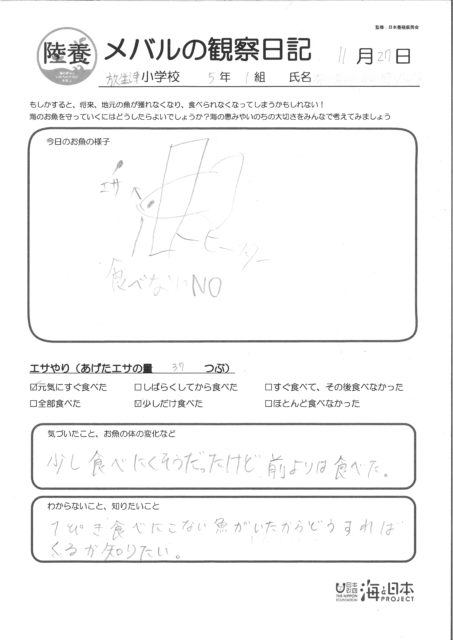 監修：日本養殖振興会
陸養 メバルの観察日記 11月27日
放生津小学校 5年 1組 氏名
もしかすると、将来、地元の魚が獲れなくなり、食べられなくなってしまうかもしれない！
海のお魚を守っていくにはどうしたらよいでしょうか？海の恵みやいのちの大切さをみんなで考えてみましょう
今日のお魚の様子
エサ
ヒーター
食べないNO
エサやり（あげたエサの量 37 つぶ）
☑元気にすぐ食べた □しばらくしてから食べた □すぐ食べて、その後食べなかった
□全部食べた ☑少しだけ食べた □ほとんど食べなかった
気づいたこと、お魚の体の変化など
少し食べにくそうだったけど前よりは食べた。
わからないこと、知りたいこと
1ぴき食べにこない魚がいたからどうすれば
くるか知りたい。
日本財団 THE NIPPON FOUNDATION 海と日本 PROJECT